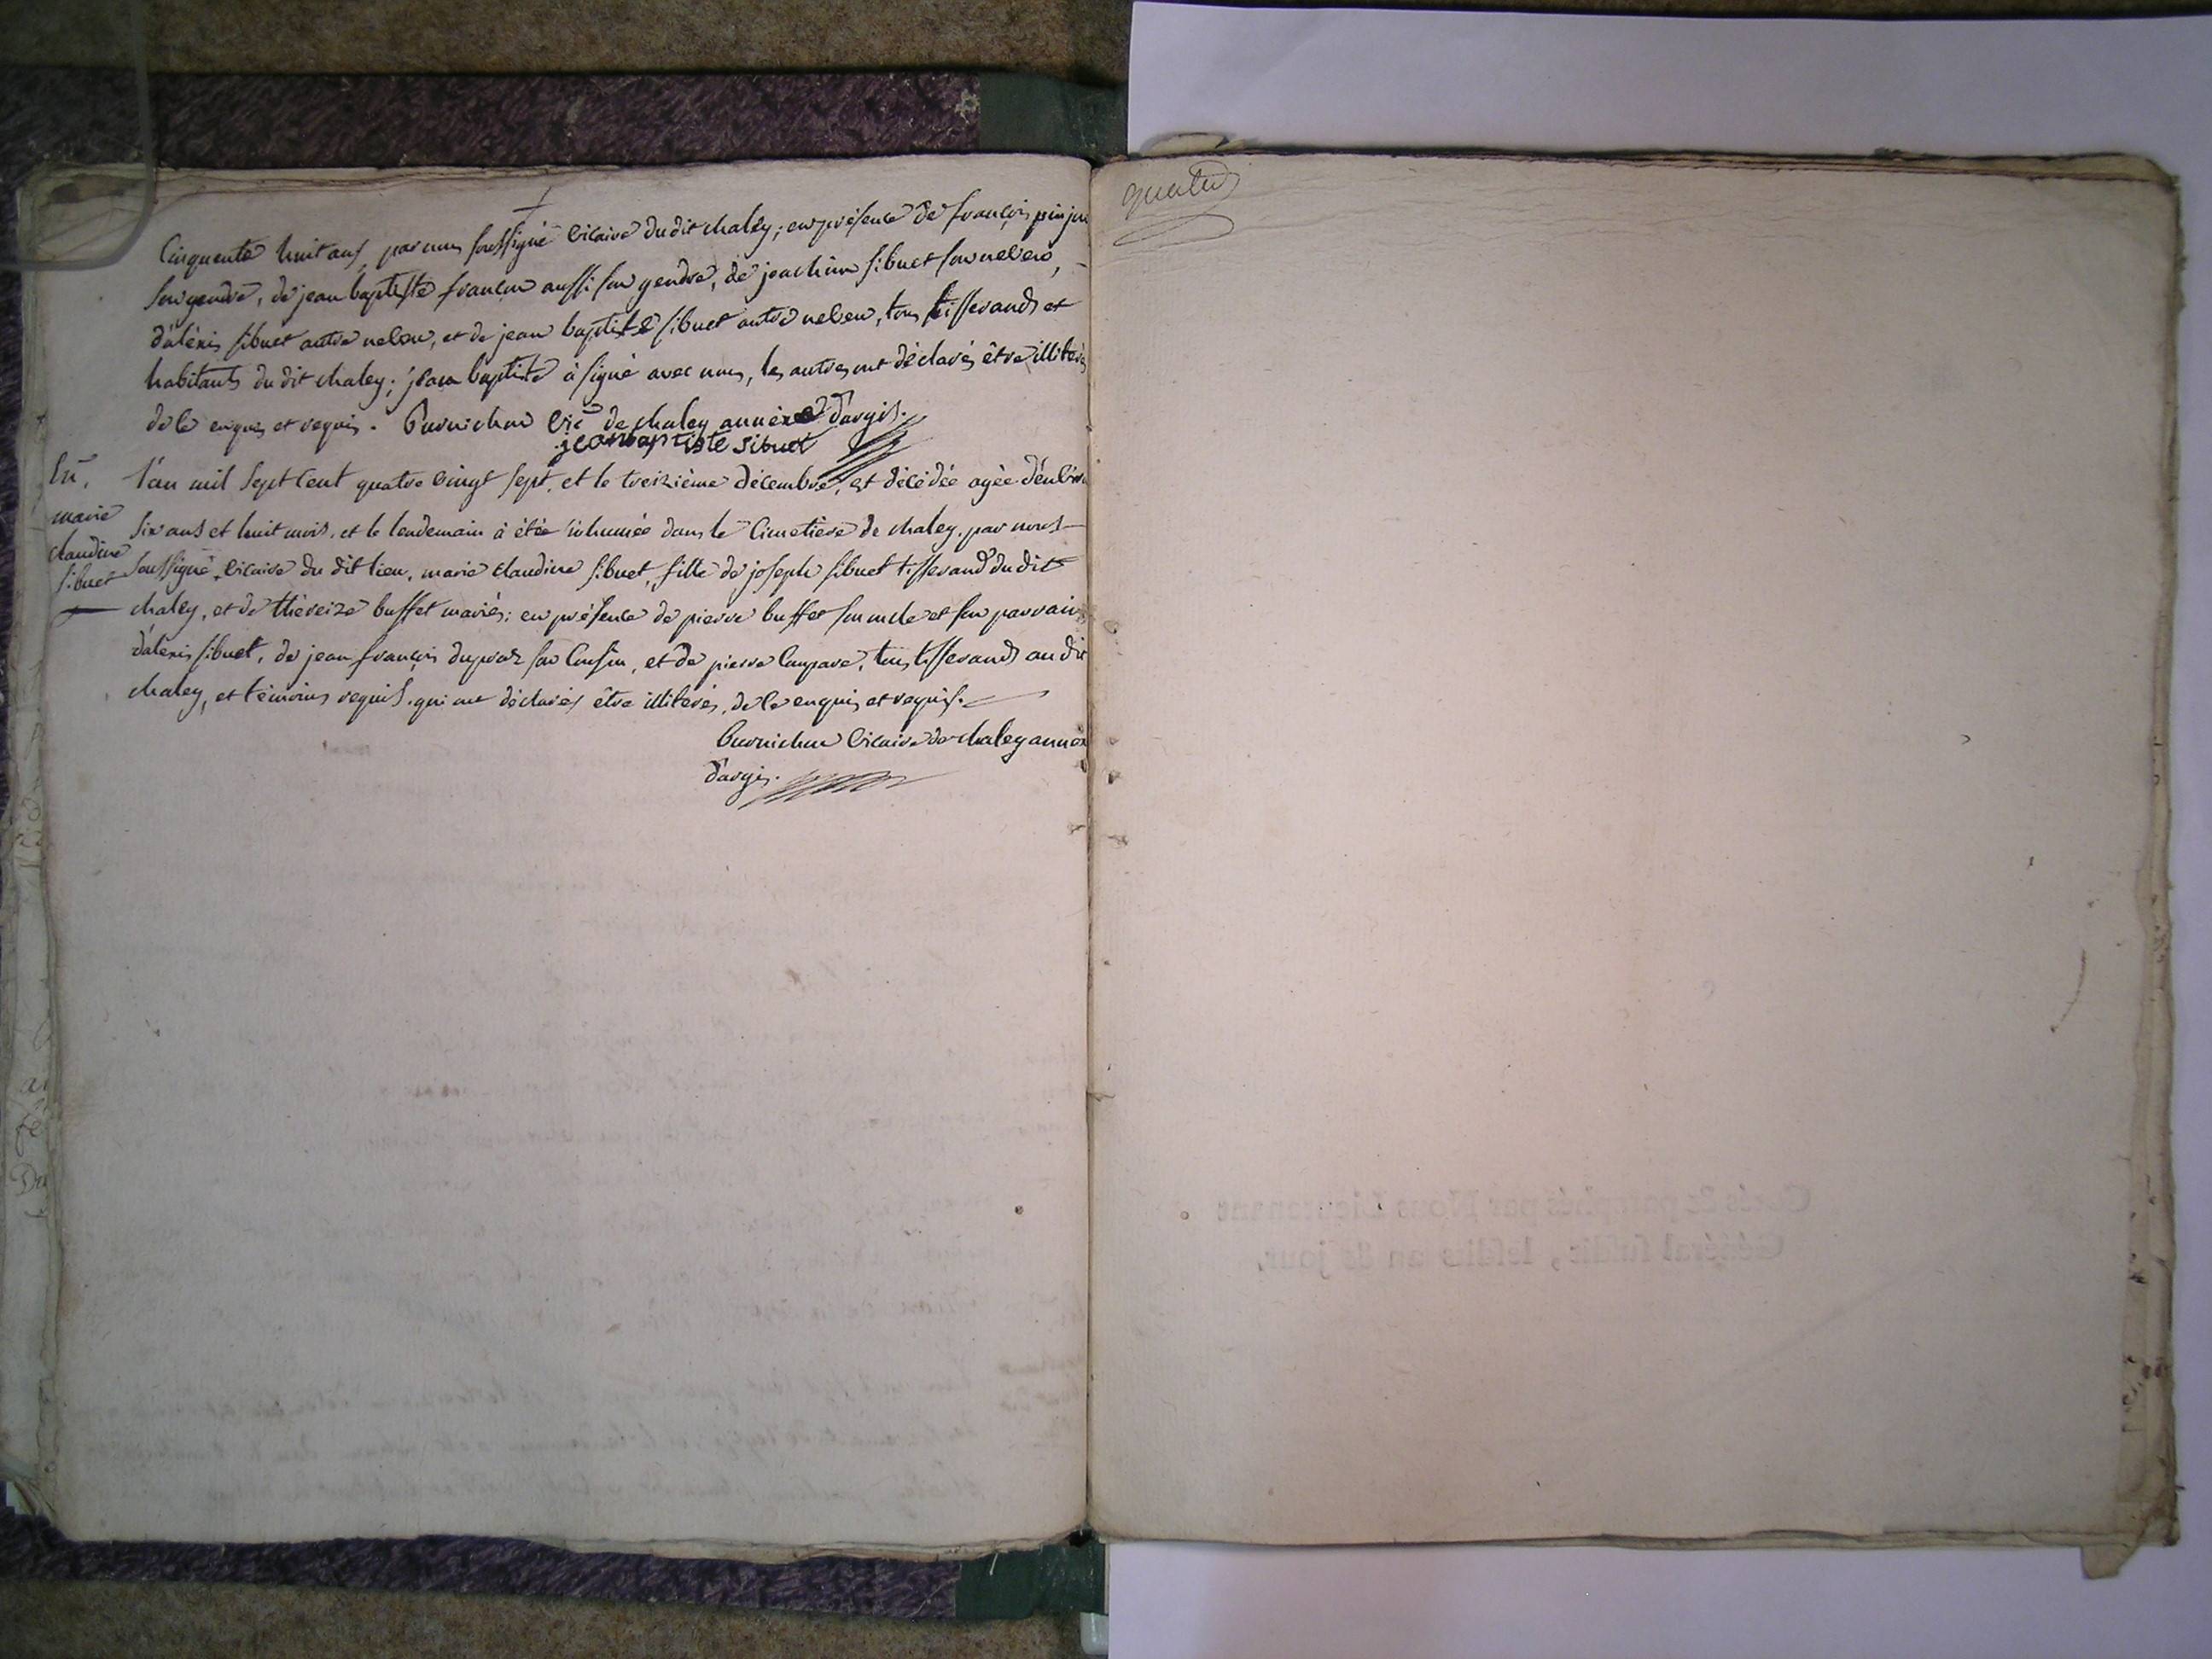 Cinquente huit ans, par nous soussigné vicaire du dit chaley; en présence de françois pin
son gendre, de jean baptiste françon aussi son gendre, de joachim sibuet son neveu,
d'aléxis sibuet autre neveu, et de jean baptiste sibuet autre neveu, tous tisserands et
habitants du dit chaley; jean baptiste à signé avec nous, les autres ont déclarés être illiterés
de ce enquis et requis. vic de chaley annéxe d'argis.
jeanbaptiste sibuet
En.
marie
claudine
sibuet
l'an mil sept cent quatre vingt sept, et le treizième décembre, est décédée agée d'environ
six ans et huit mois, et le lendemain à étée inhumée dans le cimetière de chaley, par nous
soussigné vicaire du dit lieu, marie claudine sibuet, fille de joseph sibuet tisserand du dit
chaley, et de thèreize buffet mariés; en présence de pierre buffet son oncle et son parrain
d'aléxis sibuet, de jean françois dupraz son cousin, et de pierre, tous tisserands au dit
chaley, et témoins requis qui ont déclarés être illiterés, de ce enquis et requis.
vicaire de chaley annéx
d'argis.
Cotés & paraphés par Nous Lieutenant
Général susdit, lesdits an & jour.